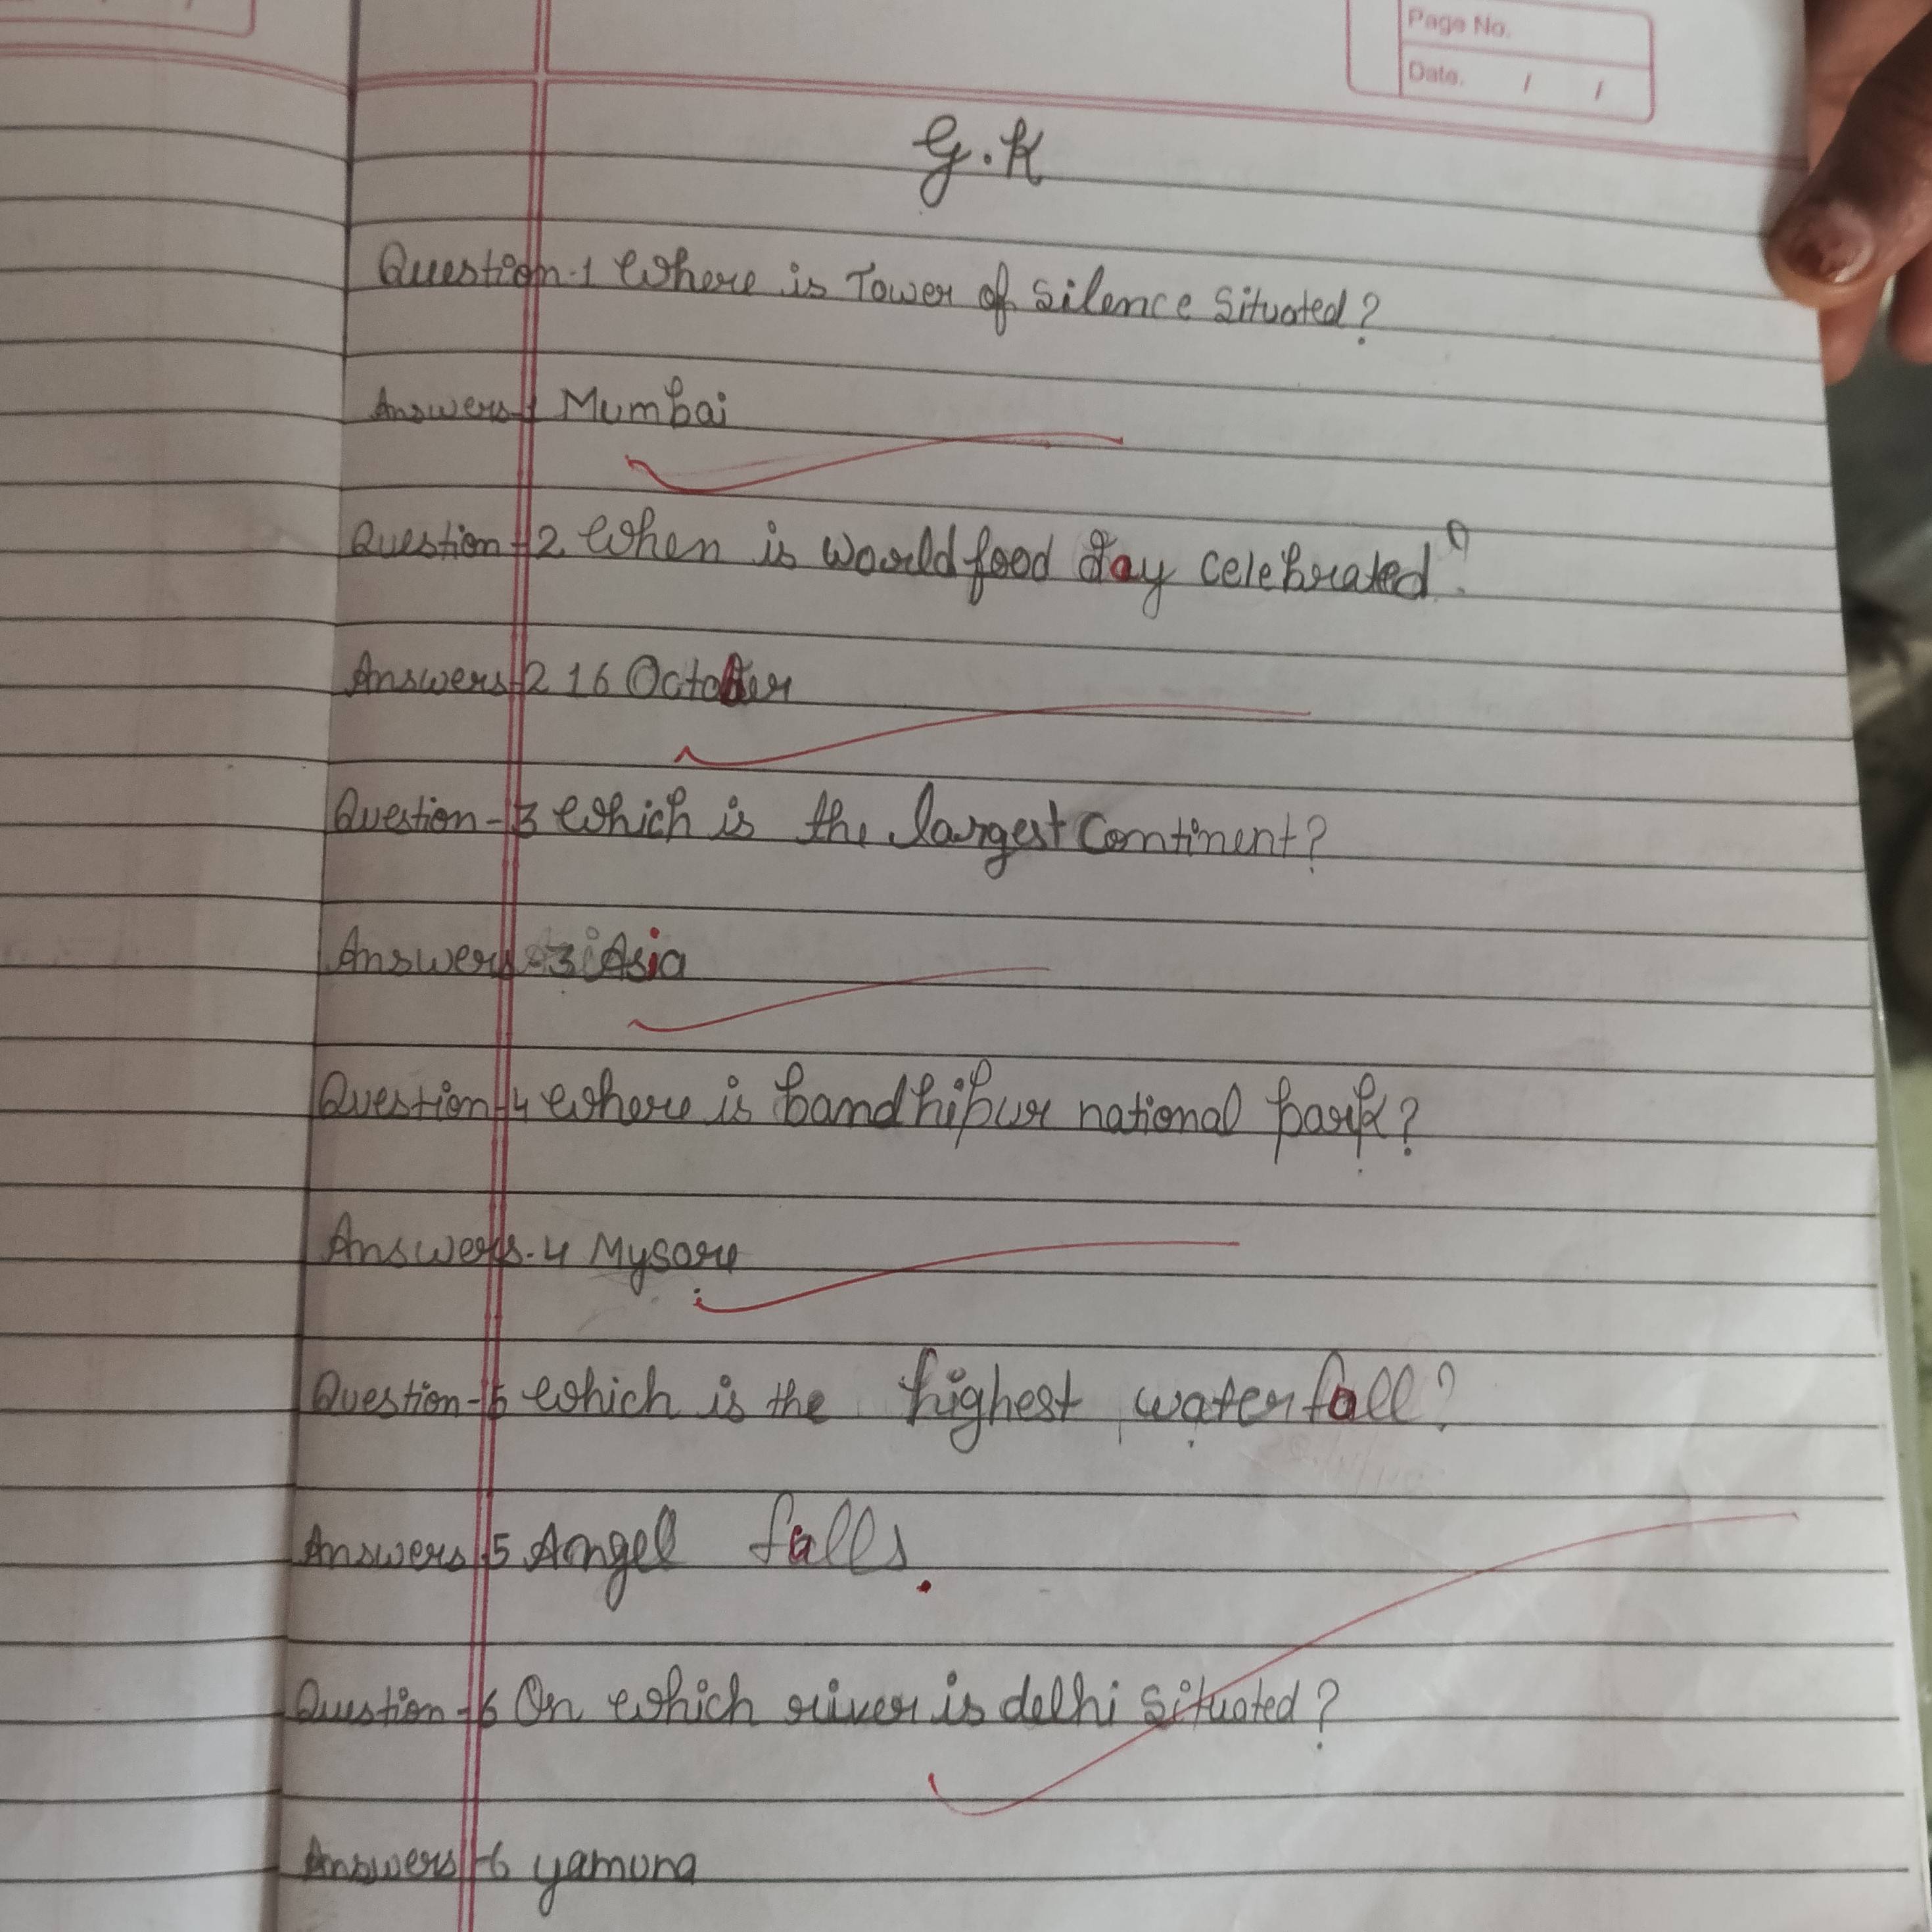 Page No.
Date. / /
G.K
Question-1 Where is Tower of Silence Situated?
Answers-1 Mumbai
Question-2 When is world food day celebrated?
Answers-2 16 October
Question-3 Which is the largest Continent?
Answers-3 Asia
Question-4 Where is bandhipur national park?
Answers-4 Mysore
Question-5 Which is the highest waterfall?
Answers-5 Angel falls.
Question-6 On which river is delhi Situated?
Answers-6 yamuna